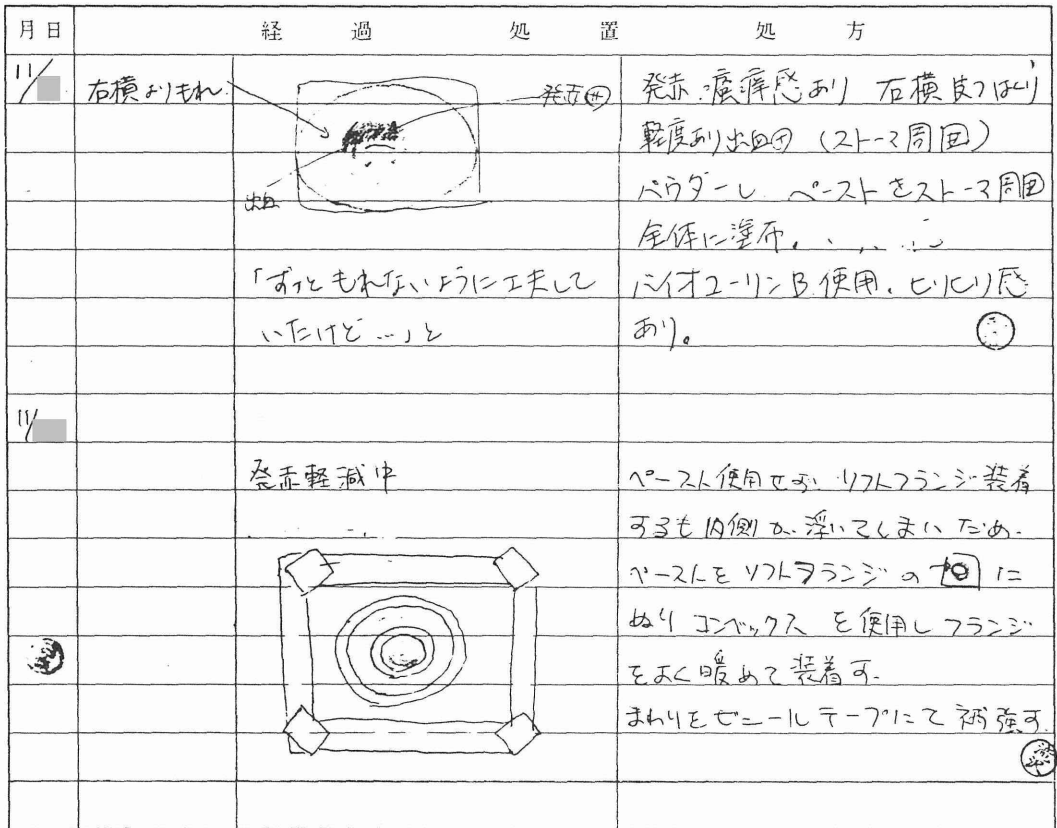 月日 経過 処置 処方
11/
右横よりもれ
発赤㊉
出血
発赤、瘙痒感あり 右横皮フはくり
軽度あり出血㊉ (ストーマ周囲)
パウダーし ペーストをストーマ周囲
全体に塗布。
「ずっともれないように工夫して
いたけど…」と
バイオユーリンB使用。ヒリヒリ感
あり。
11/
発赤軽減中
ペースト使用せず、ソフトフランジ装着
するも内側が浮いてしまいだめ。
ペーストをソフトフランジの に
ぬり コンベックスを使用しフランジ
をよく暖めて装着す。
まわりをビニールテープにて補強す。